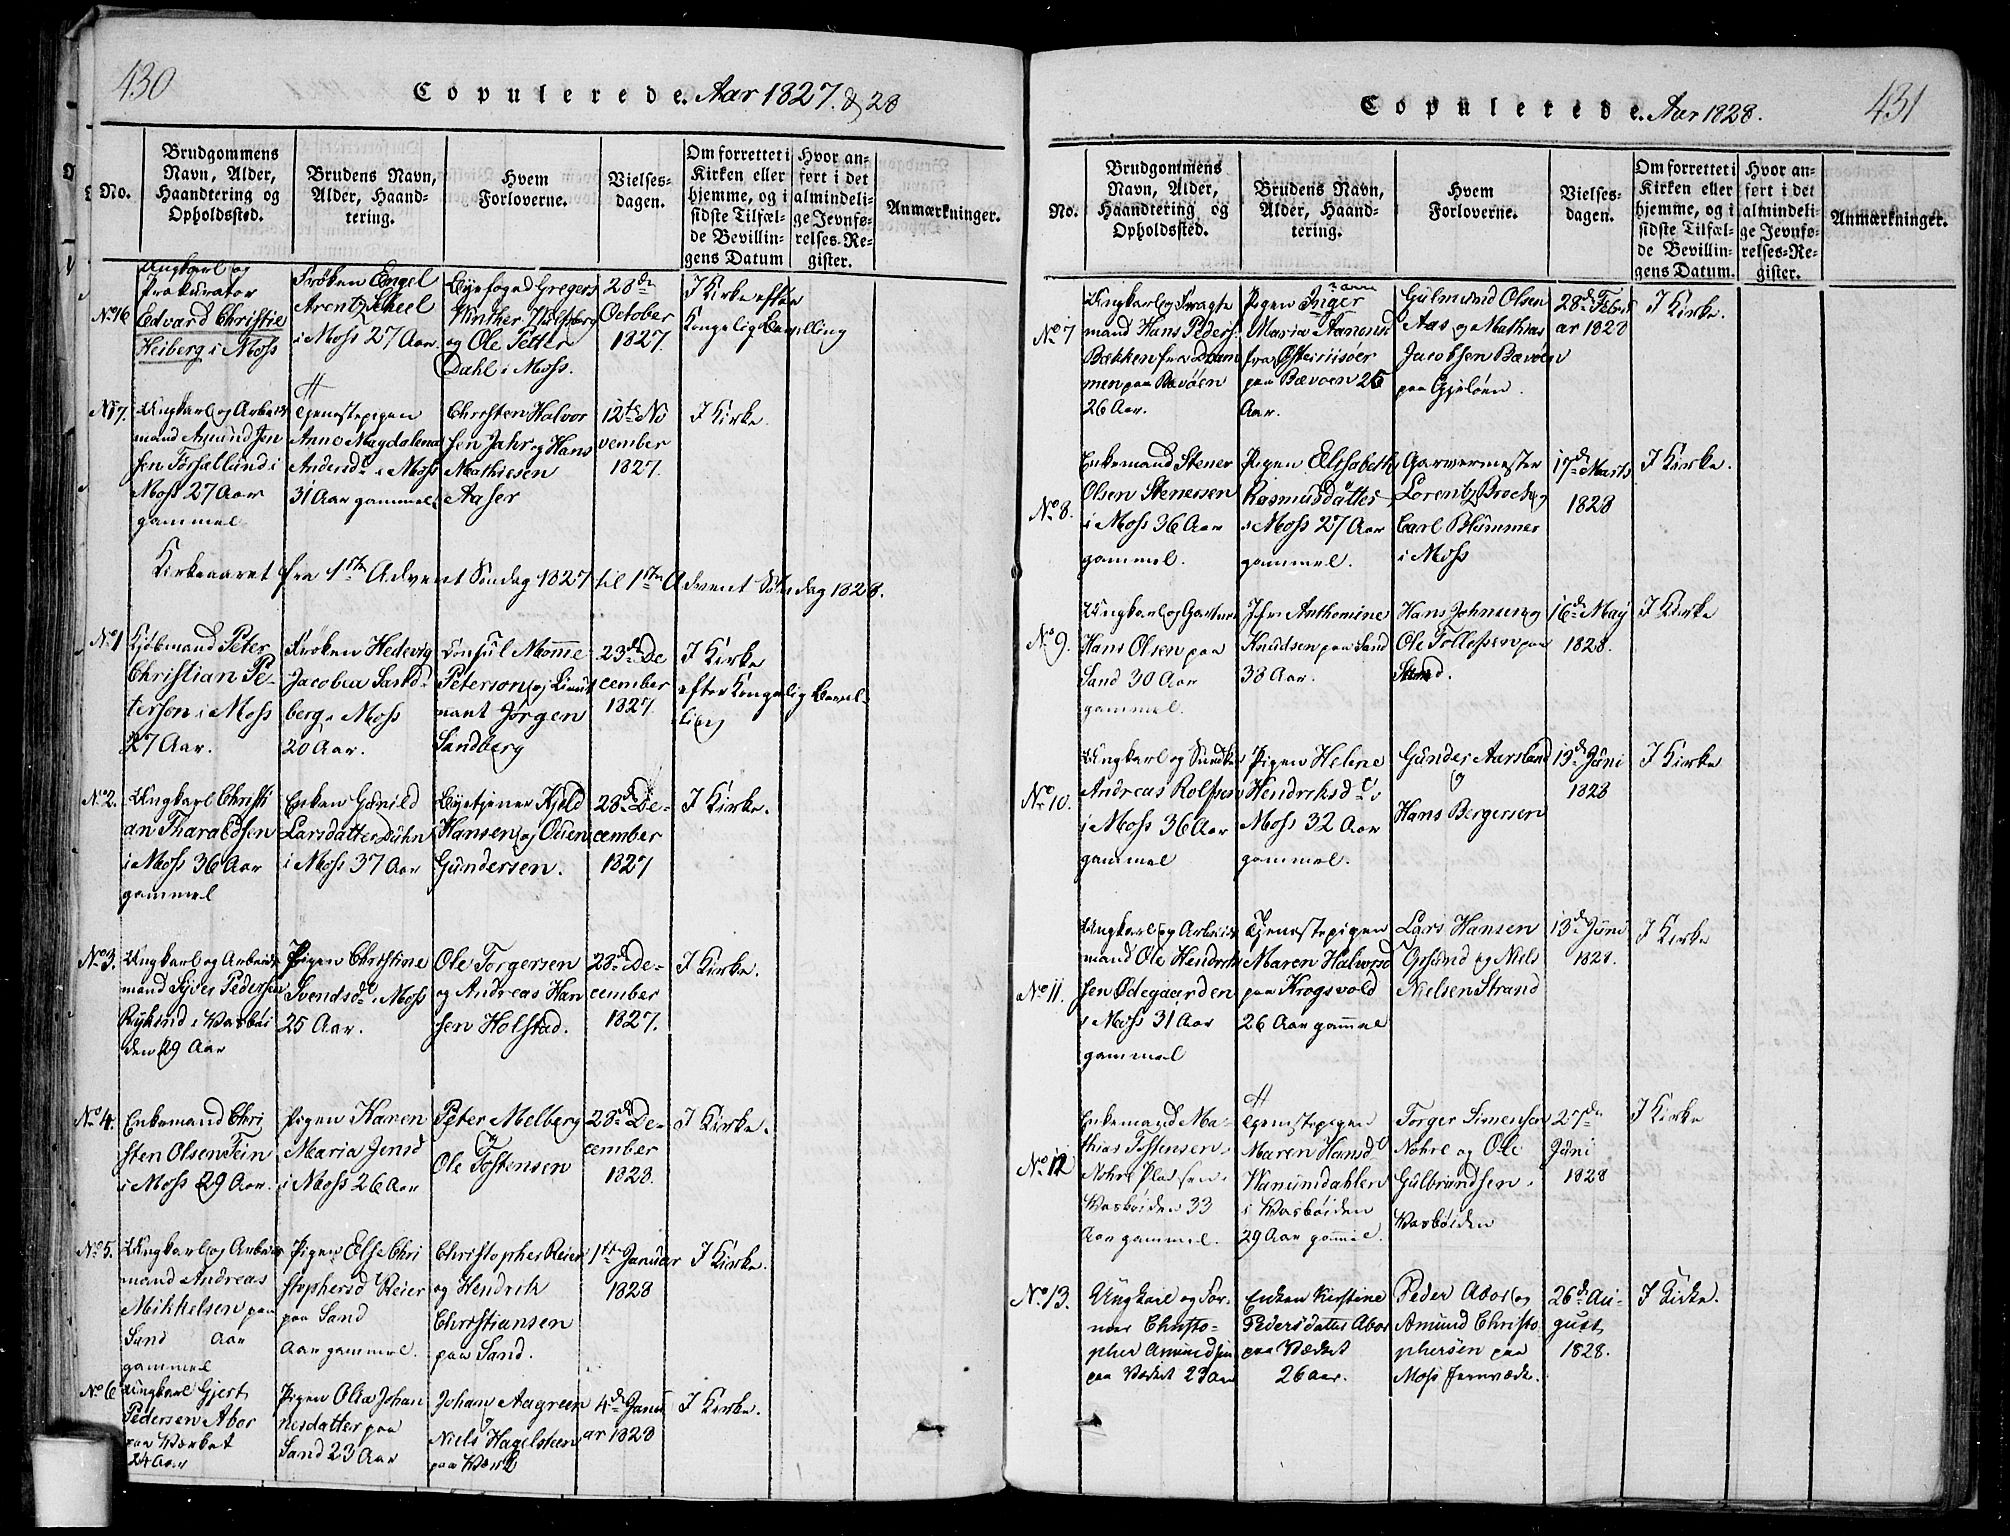 430
Copulerede. Aar 1827. & 28
No.
Brudgommens
Navn, Alder,
Haandtering og
Opholdssted.
Brudens Navn,
Alder, Haand-
tering.
Hvem
Forloverne.
Vielses-
dagen.
Om forrettet i
Kirken eller
hjemme, og i
sidste Tilfæl-
de Bevillin-
gens Datum
Hvor an-
ført i det
almindeli-
ge Jevnfø-
relses-Re-
gister.
Anmærkninger.
No 16
Ungkarl og
Prokurator
Edvard Christie
Heiberg i Moss
Frøken Engel
Arentz Scheel
i Moss 27 Aar.
Byefoged Gregers
Winther Wulfsberg
og Ole Petter
Dahl i Moss.
28de
October
1827.
I Kirke efter
Kongelig Bevilling
No 17.
Ungkarl og Arbeids
mand Asmund Jen
sen Torsællund i
Moss 27 Aar
gammel
Tjenestepigen
Anne Magdalena
Andersd. i Moss
31 Aar gammel
Christen Halvor
sen Jahr og Hans
Mathiesen
Aaser
12te No
vember
1827.
I Kirke
Kirkeaaret fra 1ste Advent Søndag 1827 til 1ste Advent Søndag 1828.
No 1
Kjøbmand Peter
Christian Pe-
tersen i Moss
27 Aar.
Frøken Hedevig
Jacobea Sand-
berg i Moss
20 Aar.
Consul Momme
Peterson og Lieut
nant Jørgen
Sandberg
23de De
cember
1827.
I Kirke
efter Kongelig Bevil-
ling
No 2.
Ungkarl Christi
an Tharaldsen
i Moss 36 Aar
gammel
Enken Gunild
Larsdatter Duhn
i Moss 37 Aar
Byetjener Kield
Hansen og Odien
Gundersen.
28de De-
cember
1827
I Kirke.
No 3.
Ungkarl og Arbeids
mand Syver Pedersen
Rykind i Vasbøi
den 29 Aar
Pigen Christine
Svendsd. i Moss
25 Aar.
Ole Torgersen
og Andreas Han
sen Holstad.
28de De-
cember
1827.
I Kirke.
No 4.
Enkemand Chri
sten Olsen Tein
i Moss 29 Aar.
Pigen Karen
Maria Jensd
i Moss 26 Aar
Peter Melberg
og
Ole Tostensen
28de De-
cember
1828.
I Kirke.
No 5.
Ungkarl og Arbeids
mand Andreas
Mikkelsen paa
Sand Aar
gammel
Pigen Else Chri
stophersd Reier
paa Sand
Aar gammel.
Christopher Reier
og Hendrik
Christiansen
paa Sand.
1ste Januar
1828
I Kirke.
No 6
Ungkarl Gjert
Pedersen Abor
paa Værket
24 Aar
Pigen Olia Johan
nesdatter paa
Sand 23 Aar
Johan Aagreen
og
Niels Hagelsteen
paa Værk
4de Janu
ar 1828
I Kirke.
431
Copulerede. Aar 1828.
No.
Brudgommens
Navn, Alder,
Haandtering og
Opholdssted.
Brudens Navn,
Alder, Haand-
tering.
Hvem
Forloverne.
Vielses-
dagen.
Om forrettet i
Kirken eller
hjemme, og i
sidste Tilfæl-
de Bevillin-
gens Datum.
Hvor an-
ført i det
almindeli-
ge Jevnfø-
relses-Re-
gister.
Anmærkninger.
No 7
Ungkarl og Fragte
mand Hans Peders.
Bækken fra Dram
men paa Bævøen
26 Aar.
Pigen Inger
Maria Aanensd
fra Østeriisøer
paa Bævøen 25
Aar.
Gulmund Olsen
Aas og Mathias
Jacobsen Bævøen
paa Gjeløen.
28de Febru
ar 1828
I Kirke.
No 8.
Enkemand Stener
Olsen Stenersen
i Moss 36 Aar
gammel.
Pigen Elisabeth
Rasmusdatter
i Moss 27 Aar
gammel.
Garvermester
Lorentz Broch og
Carl Blummer
i Moss
17de Marts
1828
I Kirke.
No 9.
Ungkarl og Gartner
Hans Olsen paa
Sand 30 Aar
gammel.
Jfr Anthomine
Knudsen paa Sand
38 Aar.
Hans Johnsen og
Ole Tollefsen paa
Sand.
16de May
1828.
I Kirke
No 10.
Ungkarl og
Andreas Rolfsen
i Moss 36 Aar
gammel
Pigen Helene
Hendriksd. i
Moss 32 Aar
gammel.
Gunder Aarsland
og
Hans Bergersen
13de Juni
1828
I Kirke
No 11.
Ungkarl og Arbeids
mand Ole Hendrik
sen Ødegaarden
i Moss 31 Aar
gammel
Tjenestepigen
Maren Halvorsd
paa Krogsvold
26 Aar gammel
Lars Hansen
Grsund og Niels
Nielsen Strand
13de Juni
1828.
I Kirke
No 12
Enkemand Ma-
thias Tostensen
Nohre Pladsen i
Vasbøiden 33
Aar gammel.
Tjenestepigen
Maren Hansd
Vamundahlen
i Vasbøiden
29 Aar gammel.
Torger Simensen
Nohre og Ole
Gulbrandsen i
Vasbøiden
27de
Juni
1828
I Kirke
No 13.
Ungkarl og For-
mer Christo-
pher Amundsen
paa Værket 23 Aar
Enken Kirstine
Pedersdatter Abor
paa Værket
26 Aar.
Peder Abor og
Amund Christo
phersen paa
Moss Jernværk.
26de Au-
gust
1828.
I Kirke.